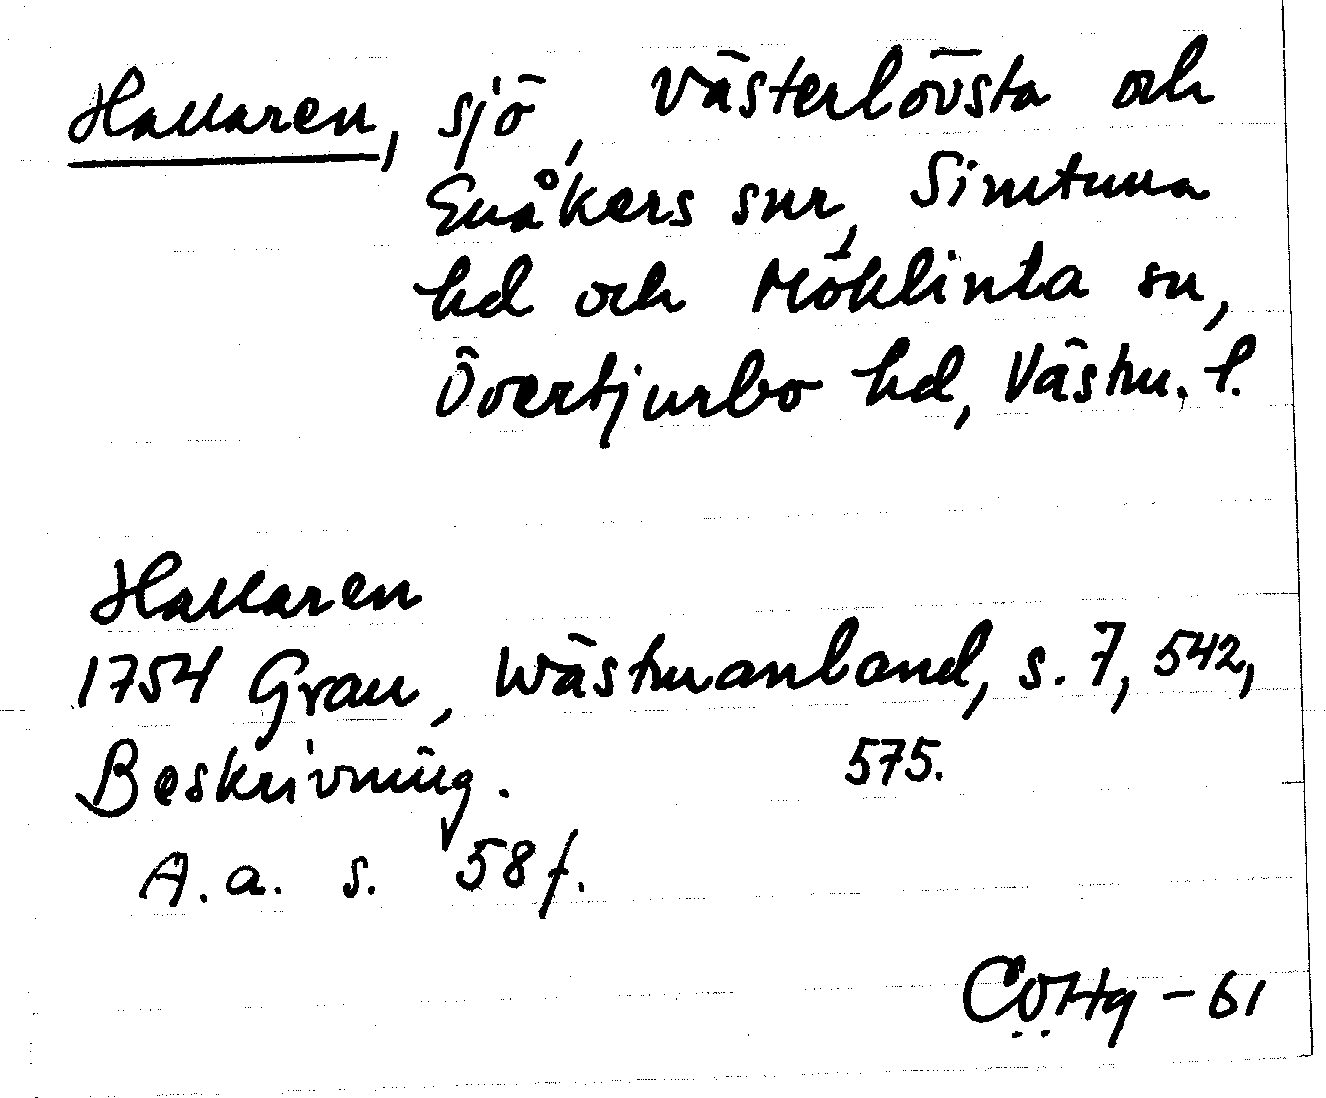 Hallaren, sjö, Västerlövsta och
Enåkers snr, Simtuna
hd och Möklinta sn,
Övertjurbo hd, Västm. l.
Hallaren
1754 Grau, Wästmanland, s. 7, 542,
575.
Beskrivning.
A. a. s. 58 f.
CÖHg - 61